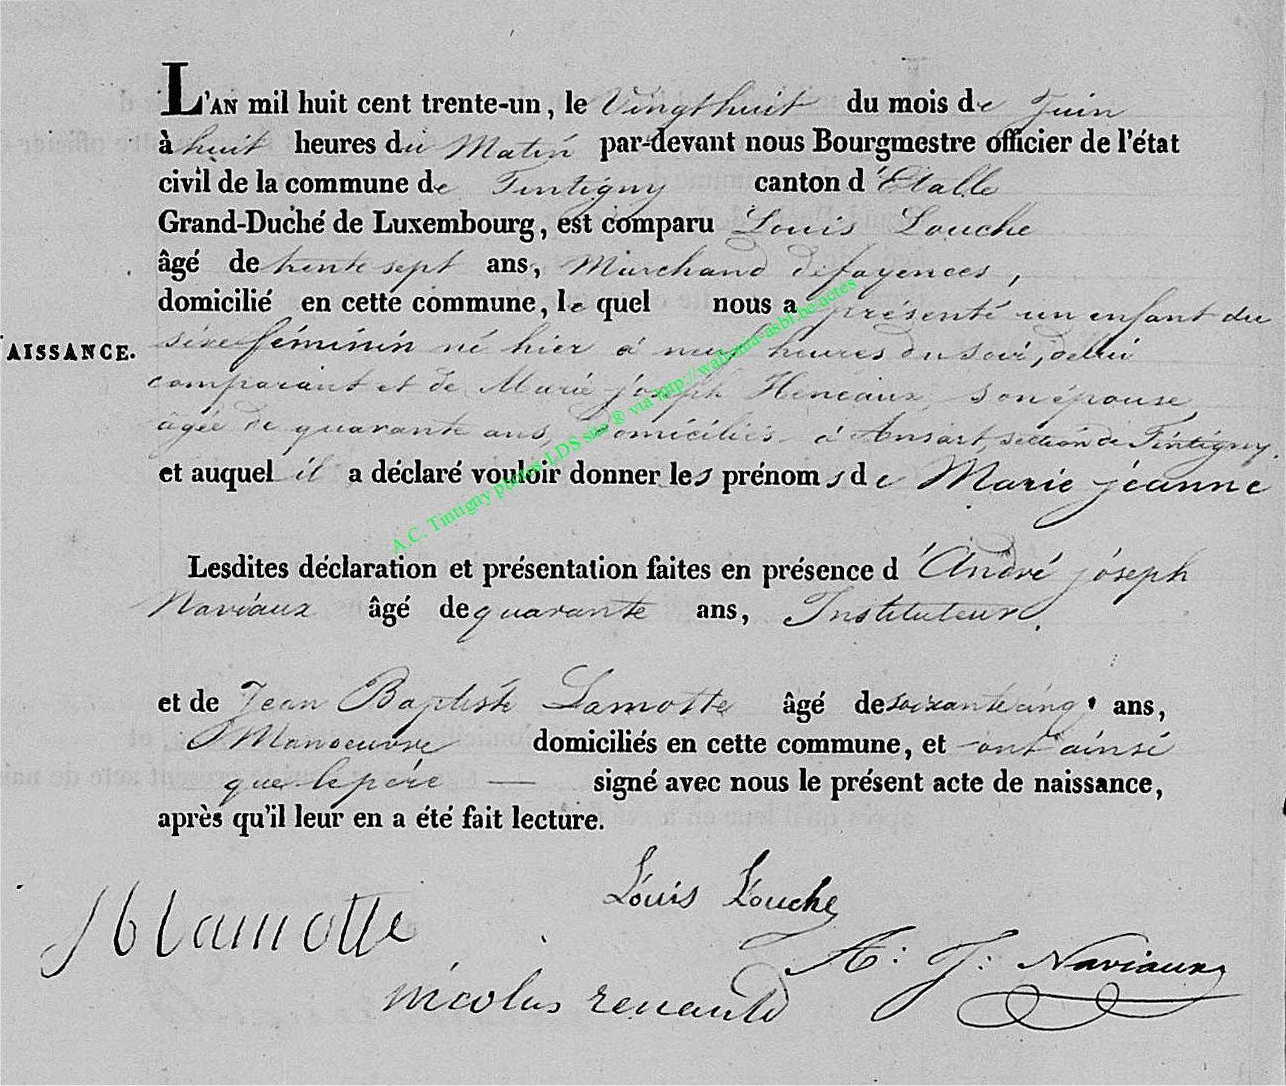 L'AN mil huit cent trente-un, le Vingt huit du mois de Juin
à huit heures du Matin par-devant nous Bourgmestre officier de l'état
civil de la commune de Tintigny canton d'Etalle
Grand-Duché de Luxembourg, est comparu Louis Louche
âgé de trente sept ans, Marchand de fayences,
domicilié en cette commune, le quel nous a présenté un enfant du
AISSANCE.
sexe féminin né hier à neuf heures du soir, de lui
comparant et de Marie joseph Heneaux, son épouse,
âgée de quarante ans, domiciliés à Ansart, section de Tintigny.
et auquel il a déclaré vouloir donner les prénoms de Marie jeanne
A.C. Tintigny photos LDS site ® via http://wallonia-asbl.be/actes
Lesdites déclaration et présentation faites en présence d'André joseph
Naviaux âgé de quarante ans, Instituteur.
et de Jean Baptiste Lamotte âgé de soixante cinq ans,
Manoeuvre domiciliés en cette commune, et ont ainsi
que le père — signé avec nous le présent acte de naissance,
après qu'il leur en a été fait lecture.
Louis Louche
Lamotte
A: J: Naviaux
nicolas renauld